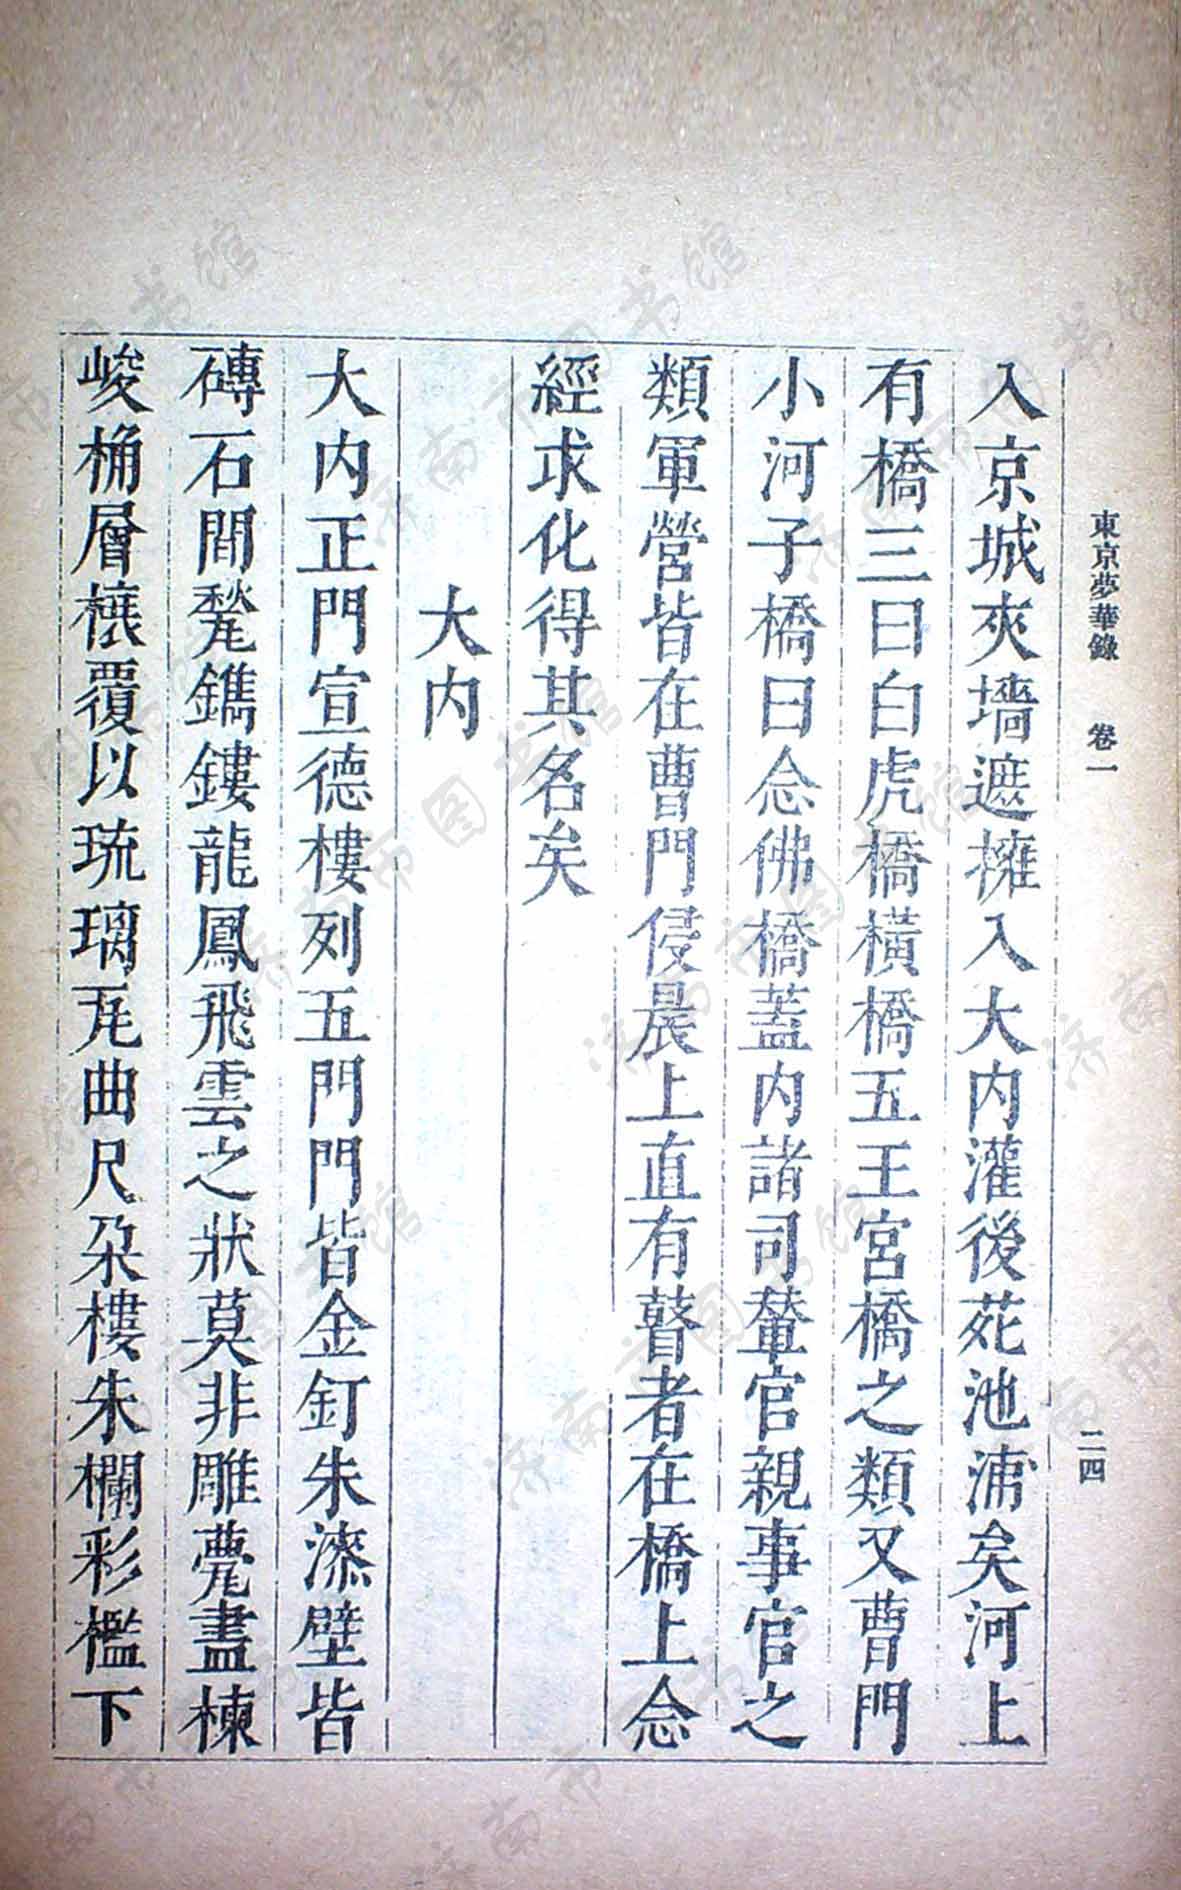 東京夢華錄 卷一 二四
入京城夾墻遮擁入大内灌後苑池浦矣河上
有橋三曰白虎橋橫橋五王宮橋之類又曹門
小河子橋曰念佛橋蓋内諸司輦官親事官之
類軍營皆在曹門侵晨上直有瞽者在橋上念
經求化得其名矣
大内
大内正門宣德樓列五門門皆金釘朱漆壁皆
磚石間甃鐫鏤龍鳳飛雲之狀莫非雕甍畫棟
峻桷層榱覆以琉璃瓦曲尺朶樓朱欄彩檻下
濟南市图书馆